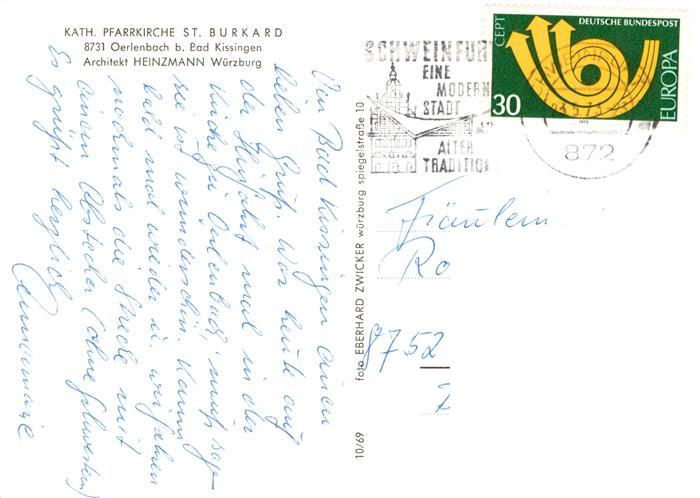 KATH. PFARRKIRCHE ST. BURKARD
8731 Oerlenbach b. Bad Kissingen
Architekt HEINZMANN Würzburg
Von Bad Kissingen einen
lieben Gruß. War heute auf
der Hinfahrt mal in der
Kirche zu Oerlenbach, muß sagen
sie ist wunderschön. Kann
bald mal wieder
nochmals die Strecke mit
einem Abstecher (ohne Schwestern)
Es grüßt herzlich
Annemarie
foto EBERHARD ZWICKER würzburg spiegelstraße 10
10/69
SCHWEINFURT
EINE
MODERNE
STADT
ALTER
TRADITION
CEPT
DEUTSCHE BUNDESPOST
30
EUROPA
1973
872
Fräulein
Ro
8752